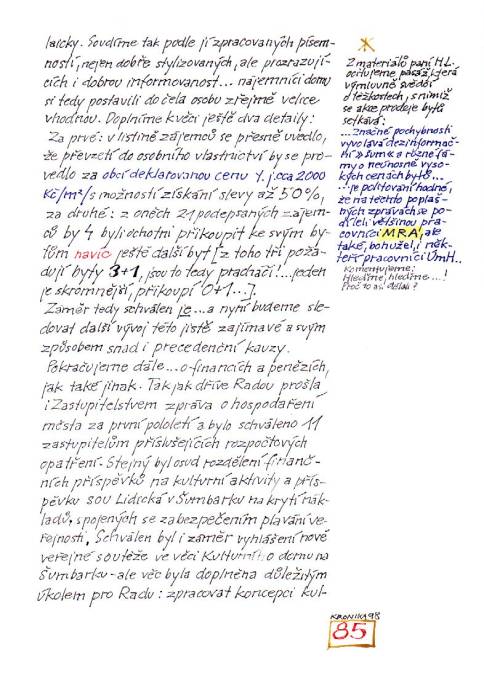 laicky. Soudíme tak podle jí zpracovaných písem-
ností, nejen dobře stylizovaných, ale prozrazují-
cích i dobrou informovanost... nájemníci domu
si tedy postavili do čela osobu zřejmě velice
vhodnou. Doplníme k věci ještě dva detaily:
Za prvé: v listině zájemců se přesně uvedlo,
že převzetí do osobního vlastnictví by se pro-
vedlo za obcí deklarovanou cenu t.j. cca 2000
Kč/m²/s možností získání slevy až 50%,
za druhé: z oněch 21 podepsaných zájem-
ců by 4 byli ochotni přikoupit ke svým by-
tům navíc ještě další byt [z toho tři požá-
dují byty 3+1, jsou to tedy pracháči!...jeden
je skromnější, přikoupí 0+1...].
Záměr tedy schválen je...a nyní budeme sle-
dovat další vývoj této jistě zajímavé a svým
způsobem snad i precedenční kauzy.
Pokračujeme dále...o financích a penězích,
jak také jinak. Tak jak dříve Radou prošla
i Zastupitelstvem zpráva o hospodaření
města za první pololetí a bylo schváleno 11
zastupitelům příslušejících rozpočtových
opatření. Stejný byl osud rozdělení finanč-
ních příspěvků na kulturní aktivity a přís-
pěvku SOU Lidická v Šumbarku na krytí nák-
ladů, spojených se zabezpečením plavání ve-
řejnosti. Schválen byl i záměr vyhlášení nové
veřejné soutěže ve věci Kulturního domu na
Šumbarku - ale věc byla doplněna důležitým
úkolem pro Radu: zpracovat koncepci kul-
Z materiálů paní H.L.
ocitujeme pasáž, která
výmluvně svědčí
o těžkostech, s nimiž
se akce prodeje bytů
setkává:
...značné pochybnosti
vyvolává dezinformač-
ní »šum« a různé fá-
my o neúnosně vyso-
kých cenách bytů...
...je politování hodné,
že na těchto poplaš-
ných zprávách se po-
díleli většinou pra-
covníci MRA, ale
také, bohužel, i něk-
teří pracovníci ÚmH...
Komentujeme:
Hleďme, hleďme...!
Proč to asi dělali?
KRONIKA 98
85